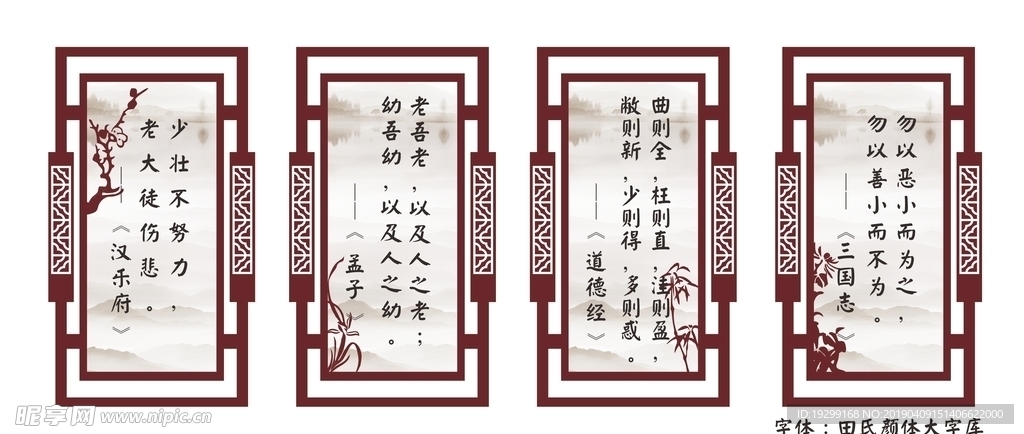 少壮不努力，
老大徒伤悲。
——《汉乐府》
老吾老，以及人之老；
幼吾幼，以及人之幼。
——《孟子》
曲则全，枉则直，洼则盈，
敝则新，少则得，多则惑。
——《道德经》
勿以恶小而为之，
勿以善小而不为。
——《三国志》
昵享网 www.nipic.cn
ID:19299168 NO:20190409151406622000
字体：田氏颜体大字库